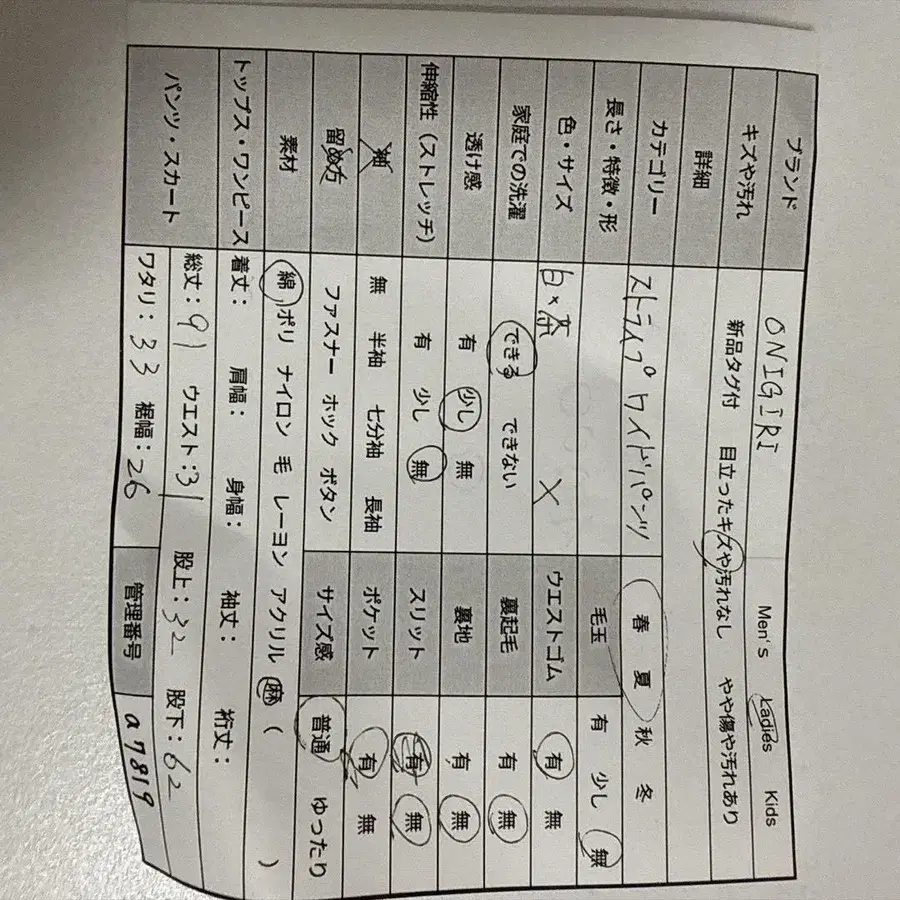 ブランド ONIGIRI Men's Ladies Kids
キズや汚れ 新品タグ付 目立ったキズや汚れなし やや傷や汚れあり
詳細
カテゴリー ストライプワイドパンツ 春 夏 秋 冬
長さ・特徴・形 毛玉 有 少し 無
色・サイズ 白×茶 × ウエストゴム 有 無
家庭での洗濯 できる できない 裏起毛 有 無
透け感 有 少し 無 裏地 有 無
伸縮性（ストレッチ） 有 少し 無 スリット 有 無
袖 無 半袖 七分袖 長袖 ポケット 有 無
留め方 ファスナー ホック ボタン サイズ感 普通 ゆったり
素材 綿 ポリ ナイロン 毛 レーヨン アクリル 麻 （ ）
トップス・ワンピース 着丈： 肩幅： 身幅： 袖丈： 裄丈：
パンツ・スカート 総丈：91 ウエスト：31 股上：32 股下：62
ワタリ：33 裾幅：26 管理番号 a7819